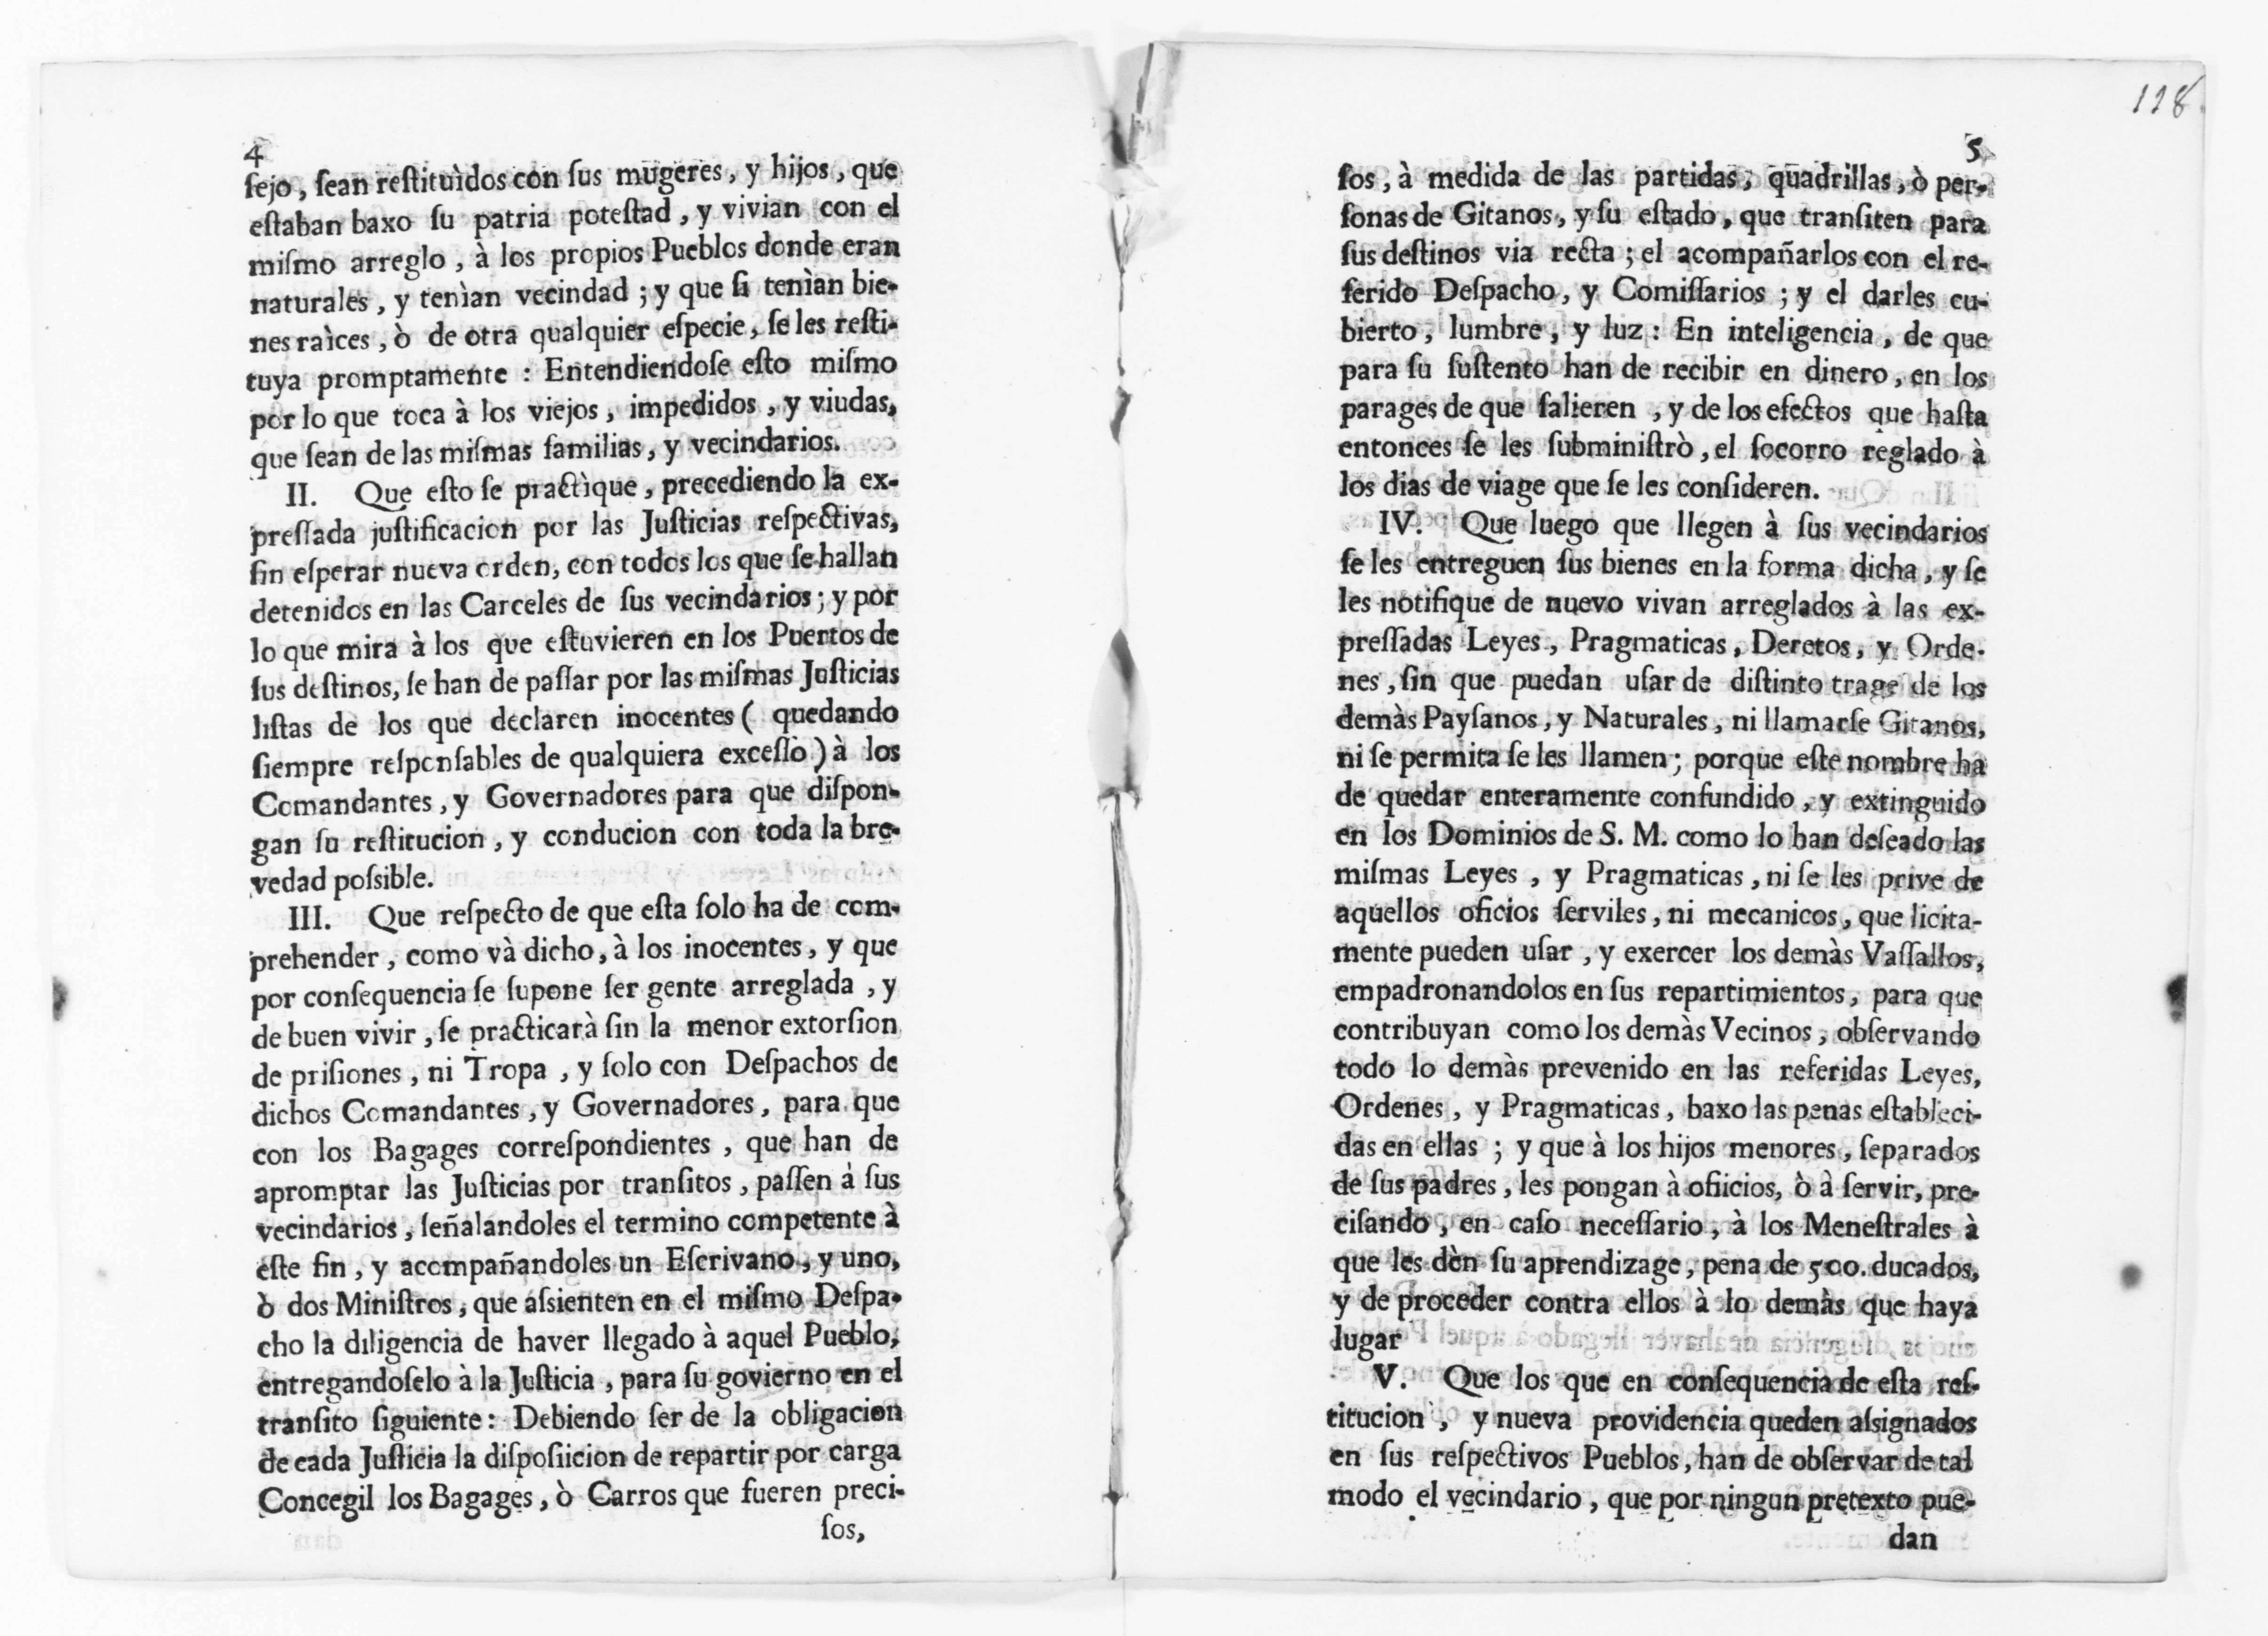 4
ſejo, ſean reſtituìdos con ſus mugeres, y hijos, que
eſtaban baxo ſu patria poteſtad, y vivian con el
miſmo arreglo, à los propios Pueblos donde eran
naturales, y tenìan vecindad; y que ſi tenìan bie-
nes raìces, ò de otra qualquier eſpecie, ſe les reſti-
tuya promptamente: Entendiendoſe eſto miſmo
por lo que toca à los viejos, impedidos, y viudas,
que ſean de las miſmas familias, y vecindarios.
II. Que eſto ſe practìque, precediendo la ex-
preſſada juſtificacion por las Juſticias reſpectivas,
ſin eſperar nueva orden, con todos los que ſe hallan
detenidos en las Carceles de ſus vecindarios; y por
lo que mira à los que eſtuvieren en los Puertos de
ſus deſtinos, ſe han de paſſar por las miſmas Juſticias
liſtas de los que declaren inocentes ( quedando
ſiempre reſponſables de qualquiera exceſſo ) à los
Comandantes, y Governadores para que diſpon-
gan ſu reſtitucion, y conducion con toda la bre-
vedad poſsible.
III. Que reſpecto de que eſta ſolo ha de com-
prehender, como và dicho, à los inocentes, y que
por conſequencia ſe ſupone ſer gente arreglada, y
de buen vivir, ſe practicarà ſin la menor extorſion
de priſiones, ni Tropa, y ſolo con Deſpachos de
dichos Comandantes, y Governadores, para que
con los Bagages correſpondientes, que han de
apromptar las Juſticias por tranſitos, paſſen à ſus
vecindarios, ſeñalandoles el termino competente à
eſte fin, y acompañandoles un Eſcrivano, y uno,
ò dos Miniſtros, que aſsienten en el miſmo Deſpa-
cho la diligencia de haver llegado à aquel Pueblo,
entregandoſelo à la Juſticia, para ſu govierno en el
tranſito ſiguiente: Debiendo ſer de la obligacion
de cada Juſticia la diſpoſiicion de repartir por carga
Concegil los Bagages, ò Carros que fueren preci-
ſos,
118.
5
ſos, à medida de las partidas, quadrillas, ò per-
ſonas de Gitanos, y ſu eſtado, que tranſiten para
ſus deſtinos via recta; el acompañarlos con el re-
ferido Deſpacho, y Comiſſarios; y el darles cu-
bierto, lumbre, y luz: En inteligencia, de que
para ſu ſuſtento han de recibir en dinero, en los
parages de que ſalieren, y de los efectos que haſta
entonces ſe les ſubminiſtrò, el ſocorro reglado à
los dias de viage que ſe les conſideren.
IV. Que luego que llegen à ſus vecindarios
ſe les entreguen ſus bienes en la forma dicha, y ſe
les notifique de nuevo vivan arreglados à las ex-
preſſadas Leyes, Pragmaticas, Deretos, y Orde-
nes, ſin que puedan uſar de diſtinto trage de los
demàs Payſanos, y Naturales, ni llamarſe Gitanos,
ni ſe permita ſe les llamen; porque eſte nombre ha
de quedar enteramente confundido, y extinguido
en los Dominios de S. M. como lo han deſeado las
miſmas Leyes, y Pragmaticas, ni ſe les prive de
aquellos oficios ſerviles, ni mecanicos, que licita-
mente pueden uſar, y exercer los demàs Vaſſallos,
empadronandolos en ſus repartimientos, para que
contribuyan como los demàs Vecinos, obſervando
todo lo demàs prevenido en las referidas Leyes,
Ordenes, y Pragmaticas, baxo las penas eſtableci-
das en ellas; y que à los hijos menores, ſeparados
de ſus padres, les pongan à ofiicios, ò à ſervir, pre-
ciſando, en caſo neceſſario, à los Meneſtrales à
que les dèn ſu aprendizage, pena de 500. ducados,
y de proceder contra ellos à lo demàs que haya
lugar
V. Que los que en conſequencia de eſta reſ-
titucion, y nueva providencia queden aſsignados
en ſus reſpectivos Pueblos, han de obſervar de tal
modo el vecindario, que por ningun pretexto pue-
dan